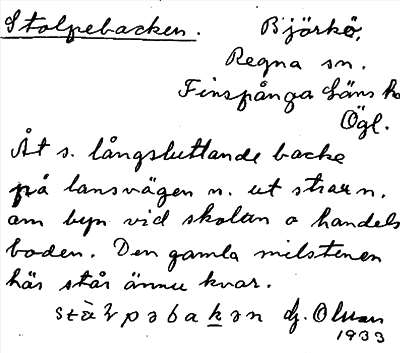 Stolpebacken.
Björkö,
Regna sn.
Finspånga läns h
Ögl.
Åt s. långsluttande backe
på lansvägen n. ut strax n.
om byn vid skolan o handels
boden. Den gamla milstenen
här står ännu kvar.
dj. Olsson
1933